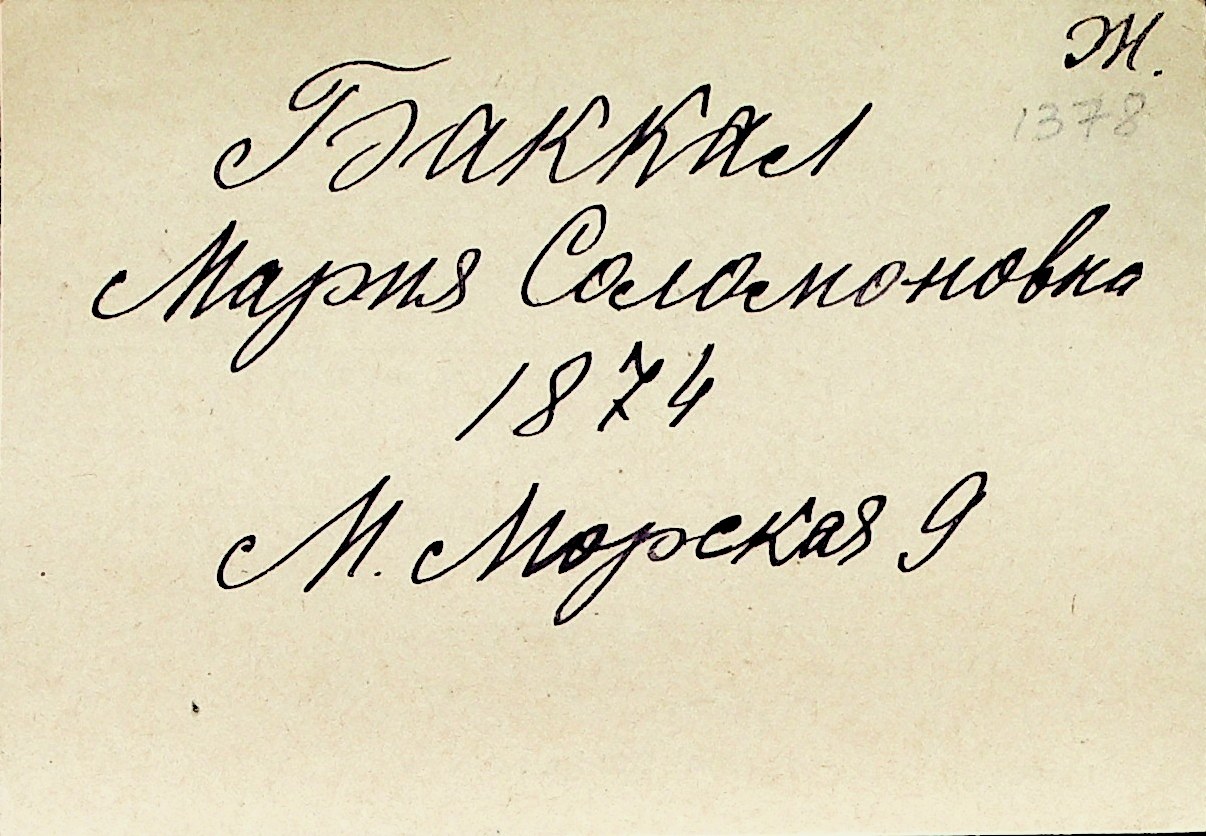 Ж.
1378
Баккал
Мария Соломоновна
1874
М. Морская 9